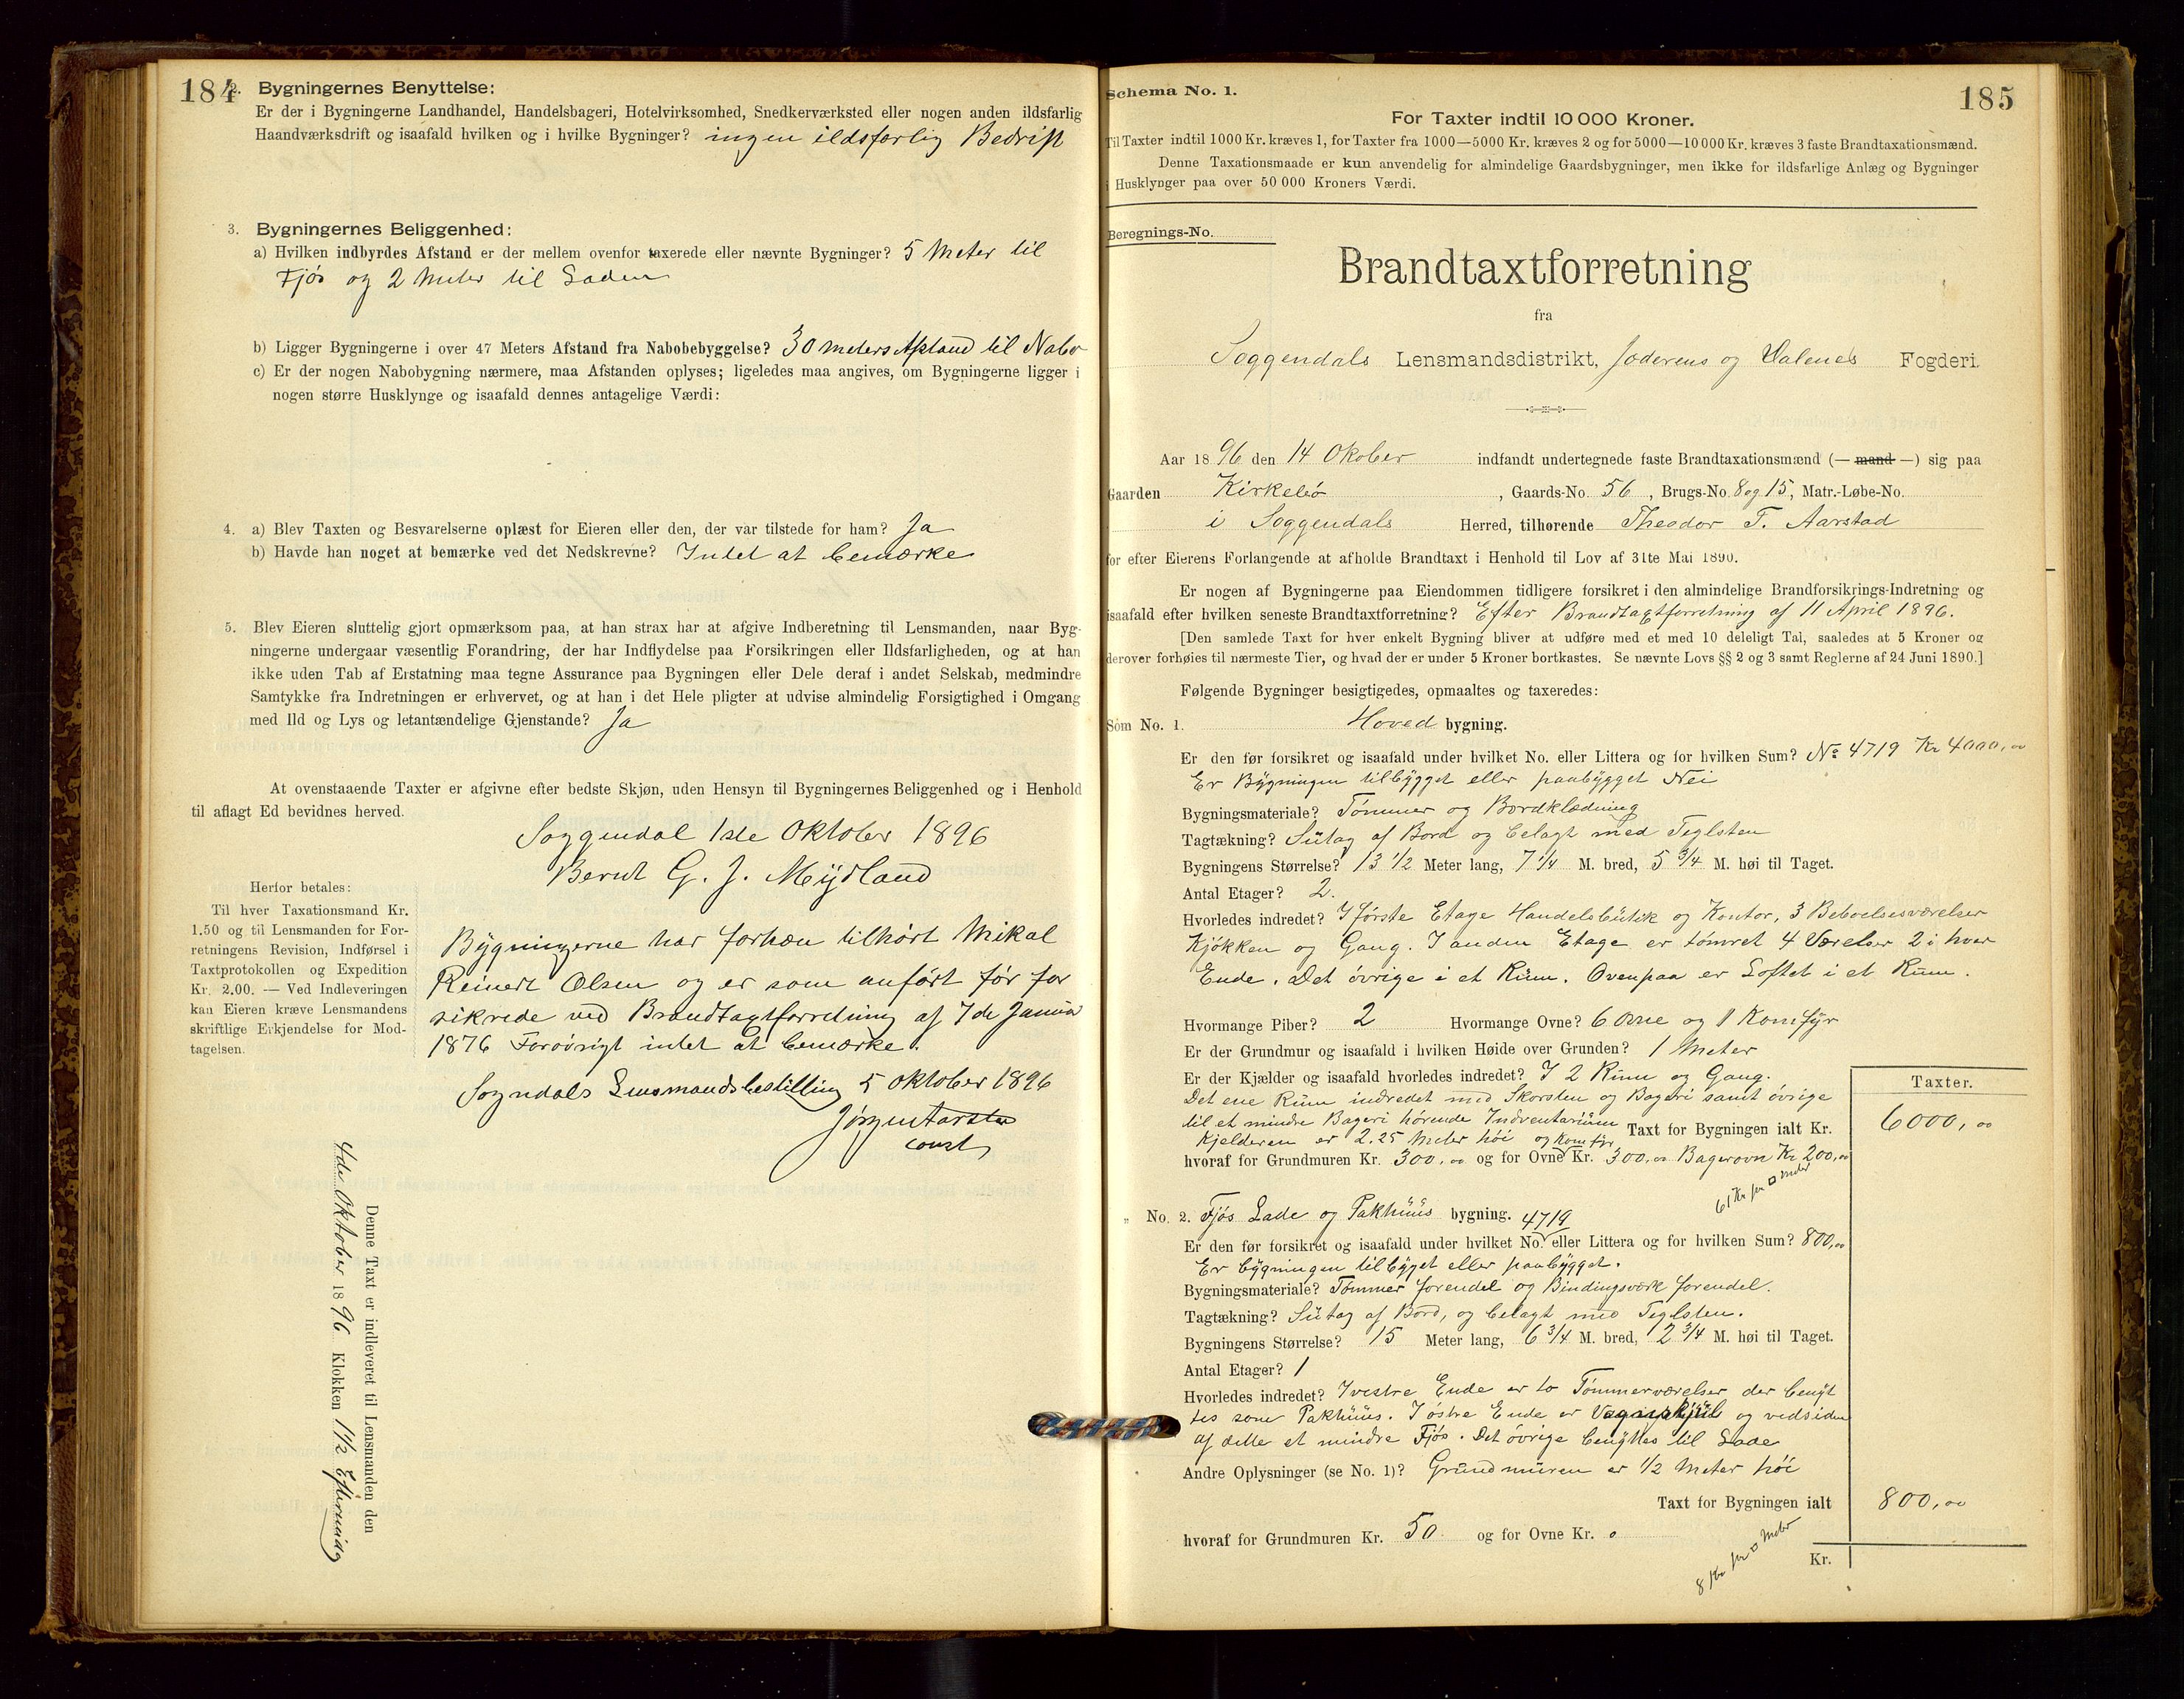 184
2. Bygningernes Benyttelse:
Er der i Bygningerne Landhandel, Handelsbageri, Hotelvirksomhed, Snedkerværksted eller nogen anden ildsfarlig
Haandværksdrift og isaafald hvilken og i hvilke Bygninger? ingen ildsfarlig Bedrift
3. Bygningernes Beliggenhed:
a) Hvilken indbyrdes Afstand er der mellem ovenfor taxerede eller nævnte Bygninger? 5 Meter til
Fjós og 2 Meter til Laden
b) Ligger Bygningerne i over 47 Meters Afstand fra Nabobebyggelse? 30 Meters Afstand til Nabo
c) Er der nogen Nabobygning nærmere, maa Afstanden oplyses; ligeledes maa angives, om Bygningerne ligger i
nogen større Husklynge og isaafald dennes antagelige Værdi:
4. a) Blev Taxten og Besvarelserne oplæst for Eieren eller den, der var tilstede for ham? Ja
b) Havde han noget at bemærke ved det Nedskrevne? Intet at bemærke
5. Blev Eieren sluttelig gjort opmærksom paa, at han strax har at afgive Indberetning til Lensmanden, naar Byg-
ningerne undergaar væsentlig Forandring, der har Indflydelse paa Forsikringen eller Ildsfarligheden, og at han
ikke uden Tab af Erstatning maa tegne Assurance paa Bygningen eller Dele deraf i andet Selskab, medmindre
Samtykke fra Indretningen er erhvervet, og at han i det Hele pligter at udvise almindelig Forsigtighed i Omgang
med Ild og Lys og letantændelige Gjenstande? Ja
At ovenstaaende Taxter er afgivne efter bedste Skjøn, uden Hensyn til Bygningernes Beliggenhed og i Henhold
til aflagt Ed bevidnes herved.
Soggendal 1ste Oktober 1896
Bernt G. J. Mydland
Herfor betales:
Til hver Taxationsmand Kr.
1.50 og til Lensmanden for For-
retningens Revision, Indførsel i
Taxtprotokollen og Expedition
Kr. 2.00. — Ved Indleveringen
kan Eieren kræve Lensmandens
skriftlige Erkjendelse for Mod-
tagelsen.
Bygningerne har forhen tilhørt Mikal
Reinert Olsen og er som anført før for
sikrede ved Brandtagtforretning af 7de Januar
1876 Forøvrigt intet at bemærke.
Sogndals Lensmandsbestilling 5 Oktober 1896
Jørgen Aarstad
const
Denne Taxt er indleveret til Lensmanden den
4de Oktober 1896 Klokken 1 1/2 Eftermidag
185
Schema No. 1.
For Taxter indtil 10 000 Kroner.
Til Taxter indtil 1000 Kr. kræves 1, for Taxter fra 1000—5000 Kr. kræves 2 og for 5000—10 000 Kr. kræves 3 faste Brandtaxationsmænd.
Denne Taxationsmaade er kun anvendelig for almindelige Gaardsbygninger, men ikke for ildsfarlige Anlæg og Bygninger
i Husklynger paa over 50 000 Kroners Værdi.
Beregnings-No.
Brandtaxtforretning
fra
Soggendals Lensmandsdistrikt, Jæderens og Dalenes Fogderi.
Aar 1896 den 14 Oktober indfandt undertegnede faste Brandtaxationsmænd (— mand —) sig paa
Gaarden Kirkebø, Gaards-No. 56, Brugs-No. 8 og 15, Matr.-Løbe-No.
i Soggendals Herred, tilhørende Theodor T. Aarstad
for efter Eierens Forlangende at afholde Brandtaxt i Henhold til Lov af 31te Mai 1890.
Er nogen af Bygningerne paa Eiendommen tidligere forsikret i den almindelige Brandforsikrings-Indretning og
isaafald efter hvilken seneste Brandtaxtforretning? Efter Brandtagtforretning af 11 April 1896.
[Den samlede Taxt for hver enkelt Bygning bliver at udføre med et med 10 deleligt Tal, saaledes at 5 Kroner og
derover forhøies til nærmeste Tier, og hvad der er under 5 Kroner bortkastes. Se nævnte Lovs §§ 2 og 3 samt Reglerne af 24 Juni 1890.]
Følgende Bygninger besigtigedes, opmaaltes og taxeredes:
Som No. 1. Hoved bygning.
Er den før forsikret og isaafald under hvilket No. eller Littera og for hvilken Sum? No 4719 Kr 4000,00
Er Bygningen tilbygget eller paabygget Nei
Bygningsmateriale? Tømmer og Bordklædning
Tagtækning? Sutag af Bord og belagt med Teglsten
Bygningens Størrelse? 13 1/2 Meter lang, 7 1/4 M. bred, 5 3/4 M. høi til Taget.
Antal Etager? 2.
Hvorledes indredet? I første Etage Handelsbutik og Kontor, 3 Beboelsesværelser
Kjøkken og Gang. I anden Etage er tømret 4 Værelser 2 i hver
Ende. Det øvrige i et Rum. Ovenpaa er Loftet i et Rum.
Hvormange Piber? 2 Hvormange Ovne? 6 Ovne og 1 Komfyr
Er der Grundmur og isaafald i hvilken Høide over Grunden? 1 Meter
Er der Kjælder og isaafald hvorledes indredet? I 2 Rum og Gang.
Det ene Rum indredet med Skorsten og Bageri samt øvrige
til et mindre Bageri hørende Indventarium
Kjelderen er 2.25 Meter høi
Taxter.
Taxt for Bygningen ialt Kr. 6000,00
hvoraf for Grundmuren Kr. 300,00 og for Ovne og Komfyr Kr. 300,00 Bagerovn Kr 200,00
61 Kr pr □ Meter
„ No. 2. Fjøs Lade og Pakhuus bygning.
Er den før forsikret og isaafald under hvilket No. 4719 eller Littera og for hvilken Sum? 800,00
Er bygningen tilbyget eller paabygget.
Bygningsmateriale? Tømmer forendel og Bindingsværk forendel.
Tagtækning? Sutag af Bord, og belagt med Teglsten.
Bygningens Størrelse? 15 Meter lang, 6 3/4 M. bred, 2 3/4 M. høi til Taget.
Antal Etager? 1
Hvorledes indredet? I vestre Ende er to Tømmerværelser der benyt
tes som Pakhuus. I østre Ende er Vognskjul og vedsiden
af dette et mindre Fjøs. Det øvrige benyttes til Lade
Andre Oplysninger (se No. 1)? Grundmuren er 1/2 Meter høi
Taxt for Bygningen ialt 800,00
hvoraf for Grundmuren Kr. 50 og for Ovne Kr. 0
8 Kr pr □ Meter
Kr.